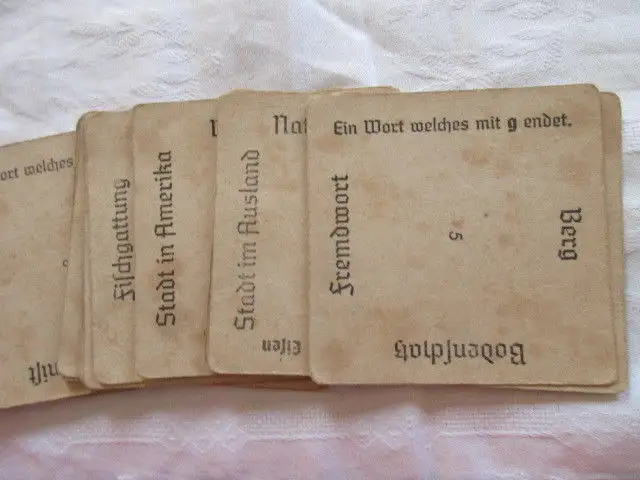 ort welches
Fischgattung
Stadt in Amerika
Nat
Stadt im Ausland
Eisen
Ein Wort welches mit g endet.
Fremdwort
5
Berg
Bodenschatz